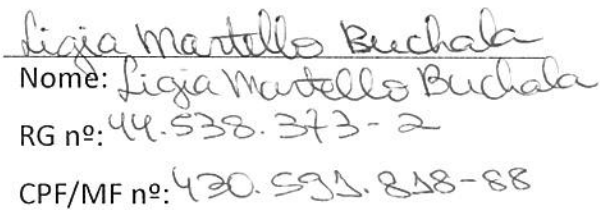 Ligia Martello Buchala
Nome: Ligia Martello Buchala
RG nº: 44.538.373-2
CPF/MF nº: 430.591.818-88